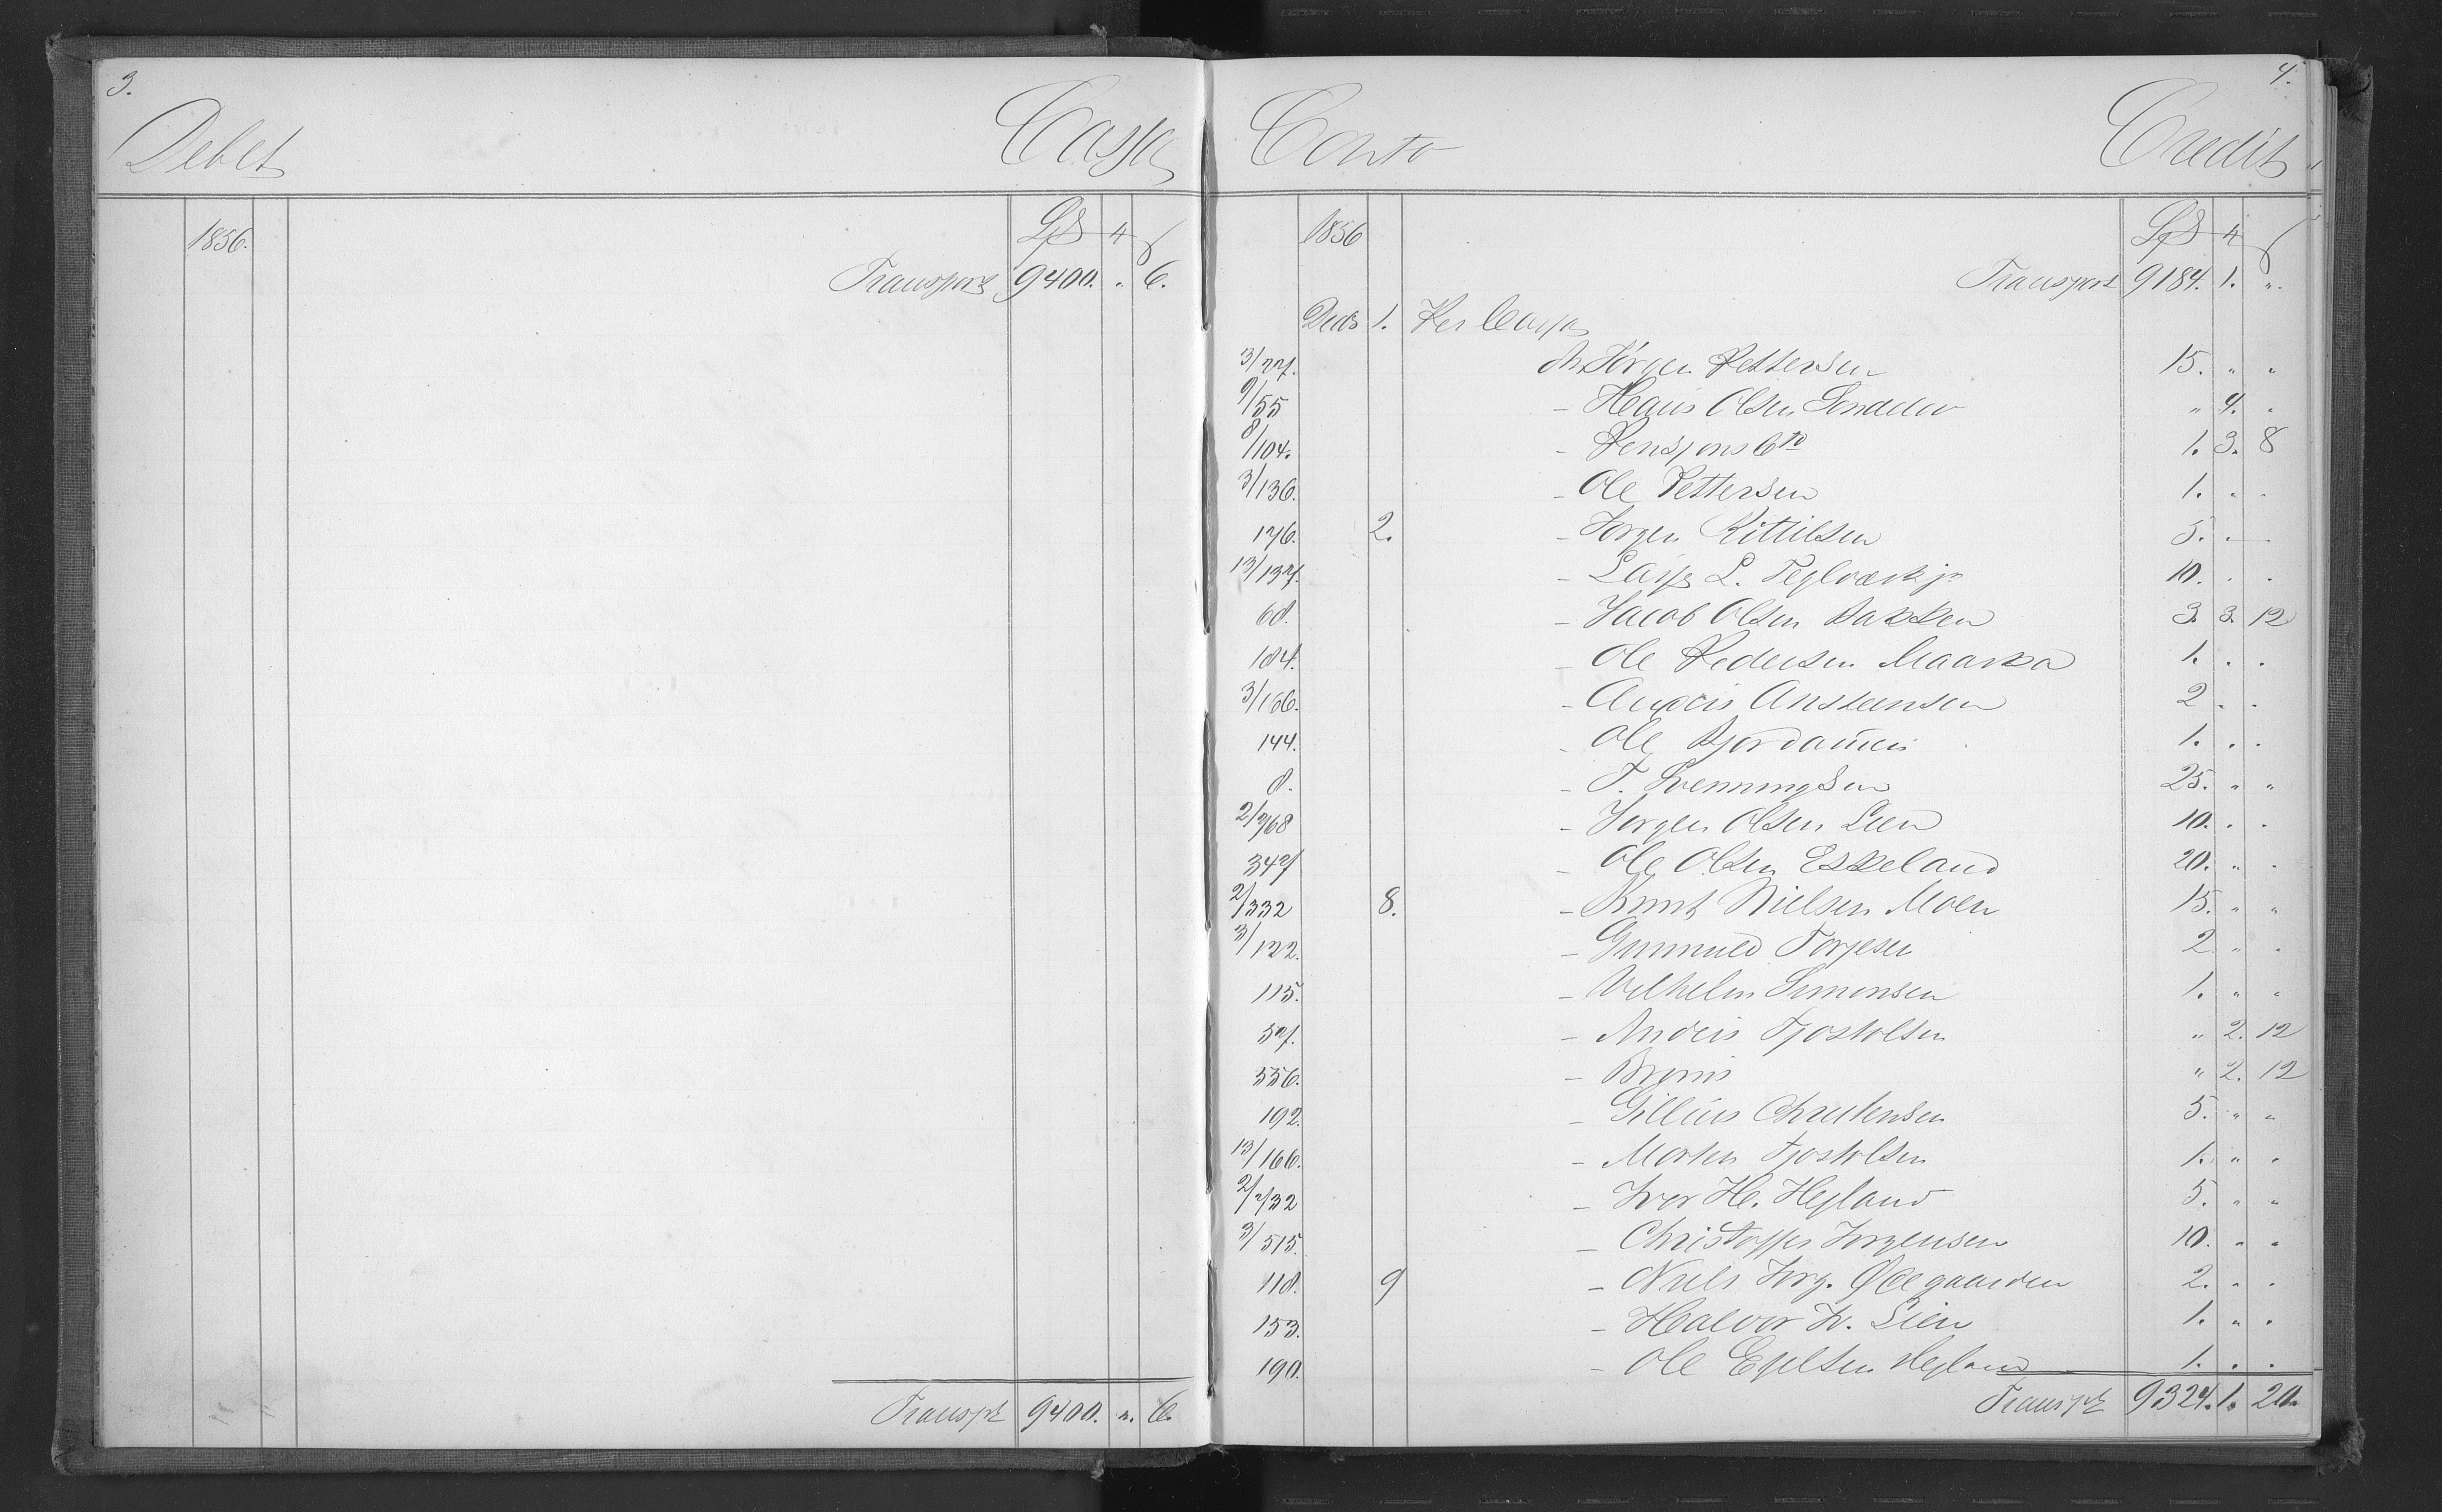 3.
Debet Cassa
1856. Spd ort ß
Transport 9400. " 6.
Transpt 9400. ". 6.
4.
Conto Credit
1856 Spd ort ß
Transport 9184. 1. ".
Decb 1. Per Cassa
3/27. An Jörgen Pettersen 15. " "
9/55 - Hans Olsen " 4. "
8/104. - Pensjons Cto 1. 3. 8
3/136. - Ole Pettersen 1. " "
176. 2. - Jörgen Kittilsen 5. " "
13/137. - Lars L. Teglværk 10. " "
68. - Jacob Olsen Bakken 3. 3. 12
184. - Ole Pedersen 1. " "
3/166. - Anders Anstensen 2 " "
144. - Ole 1. " "
8. - T. Svenningsen 25. " "
2/768 - Jörgen Olsen Lien 10. " "
347 - Ole Olsen Eskeland 20. " "
2/332 8. - Knut Nielsen Moen 15. " "
3/122. - Gunnuld Torjesen 2 " "
115. - Vilhelm Simonsen 1. " "
37. - Anders Tjostolsen " 2. 12
356. - " 2. 12
192. - Gillius Christensen 5. " "
13/166. - Morten Tjostolsen 1. " "
2/732 - Iver H. Hegland 5. " "
3/515. - Christoffer Jörgensen 10. " "
118. 9 - Niels Jörg. Ødegaarden 2. " "
153. - Halvor Lien 1. " "
190. - Ole Hegland 1. " "
Transpt 9324. 1. 20.